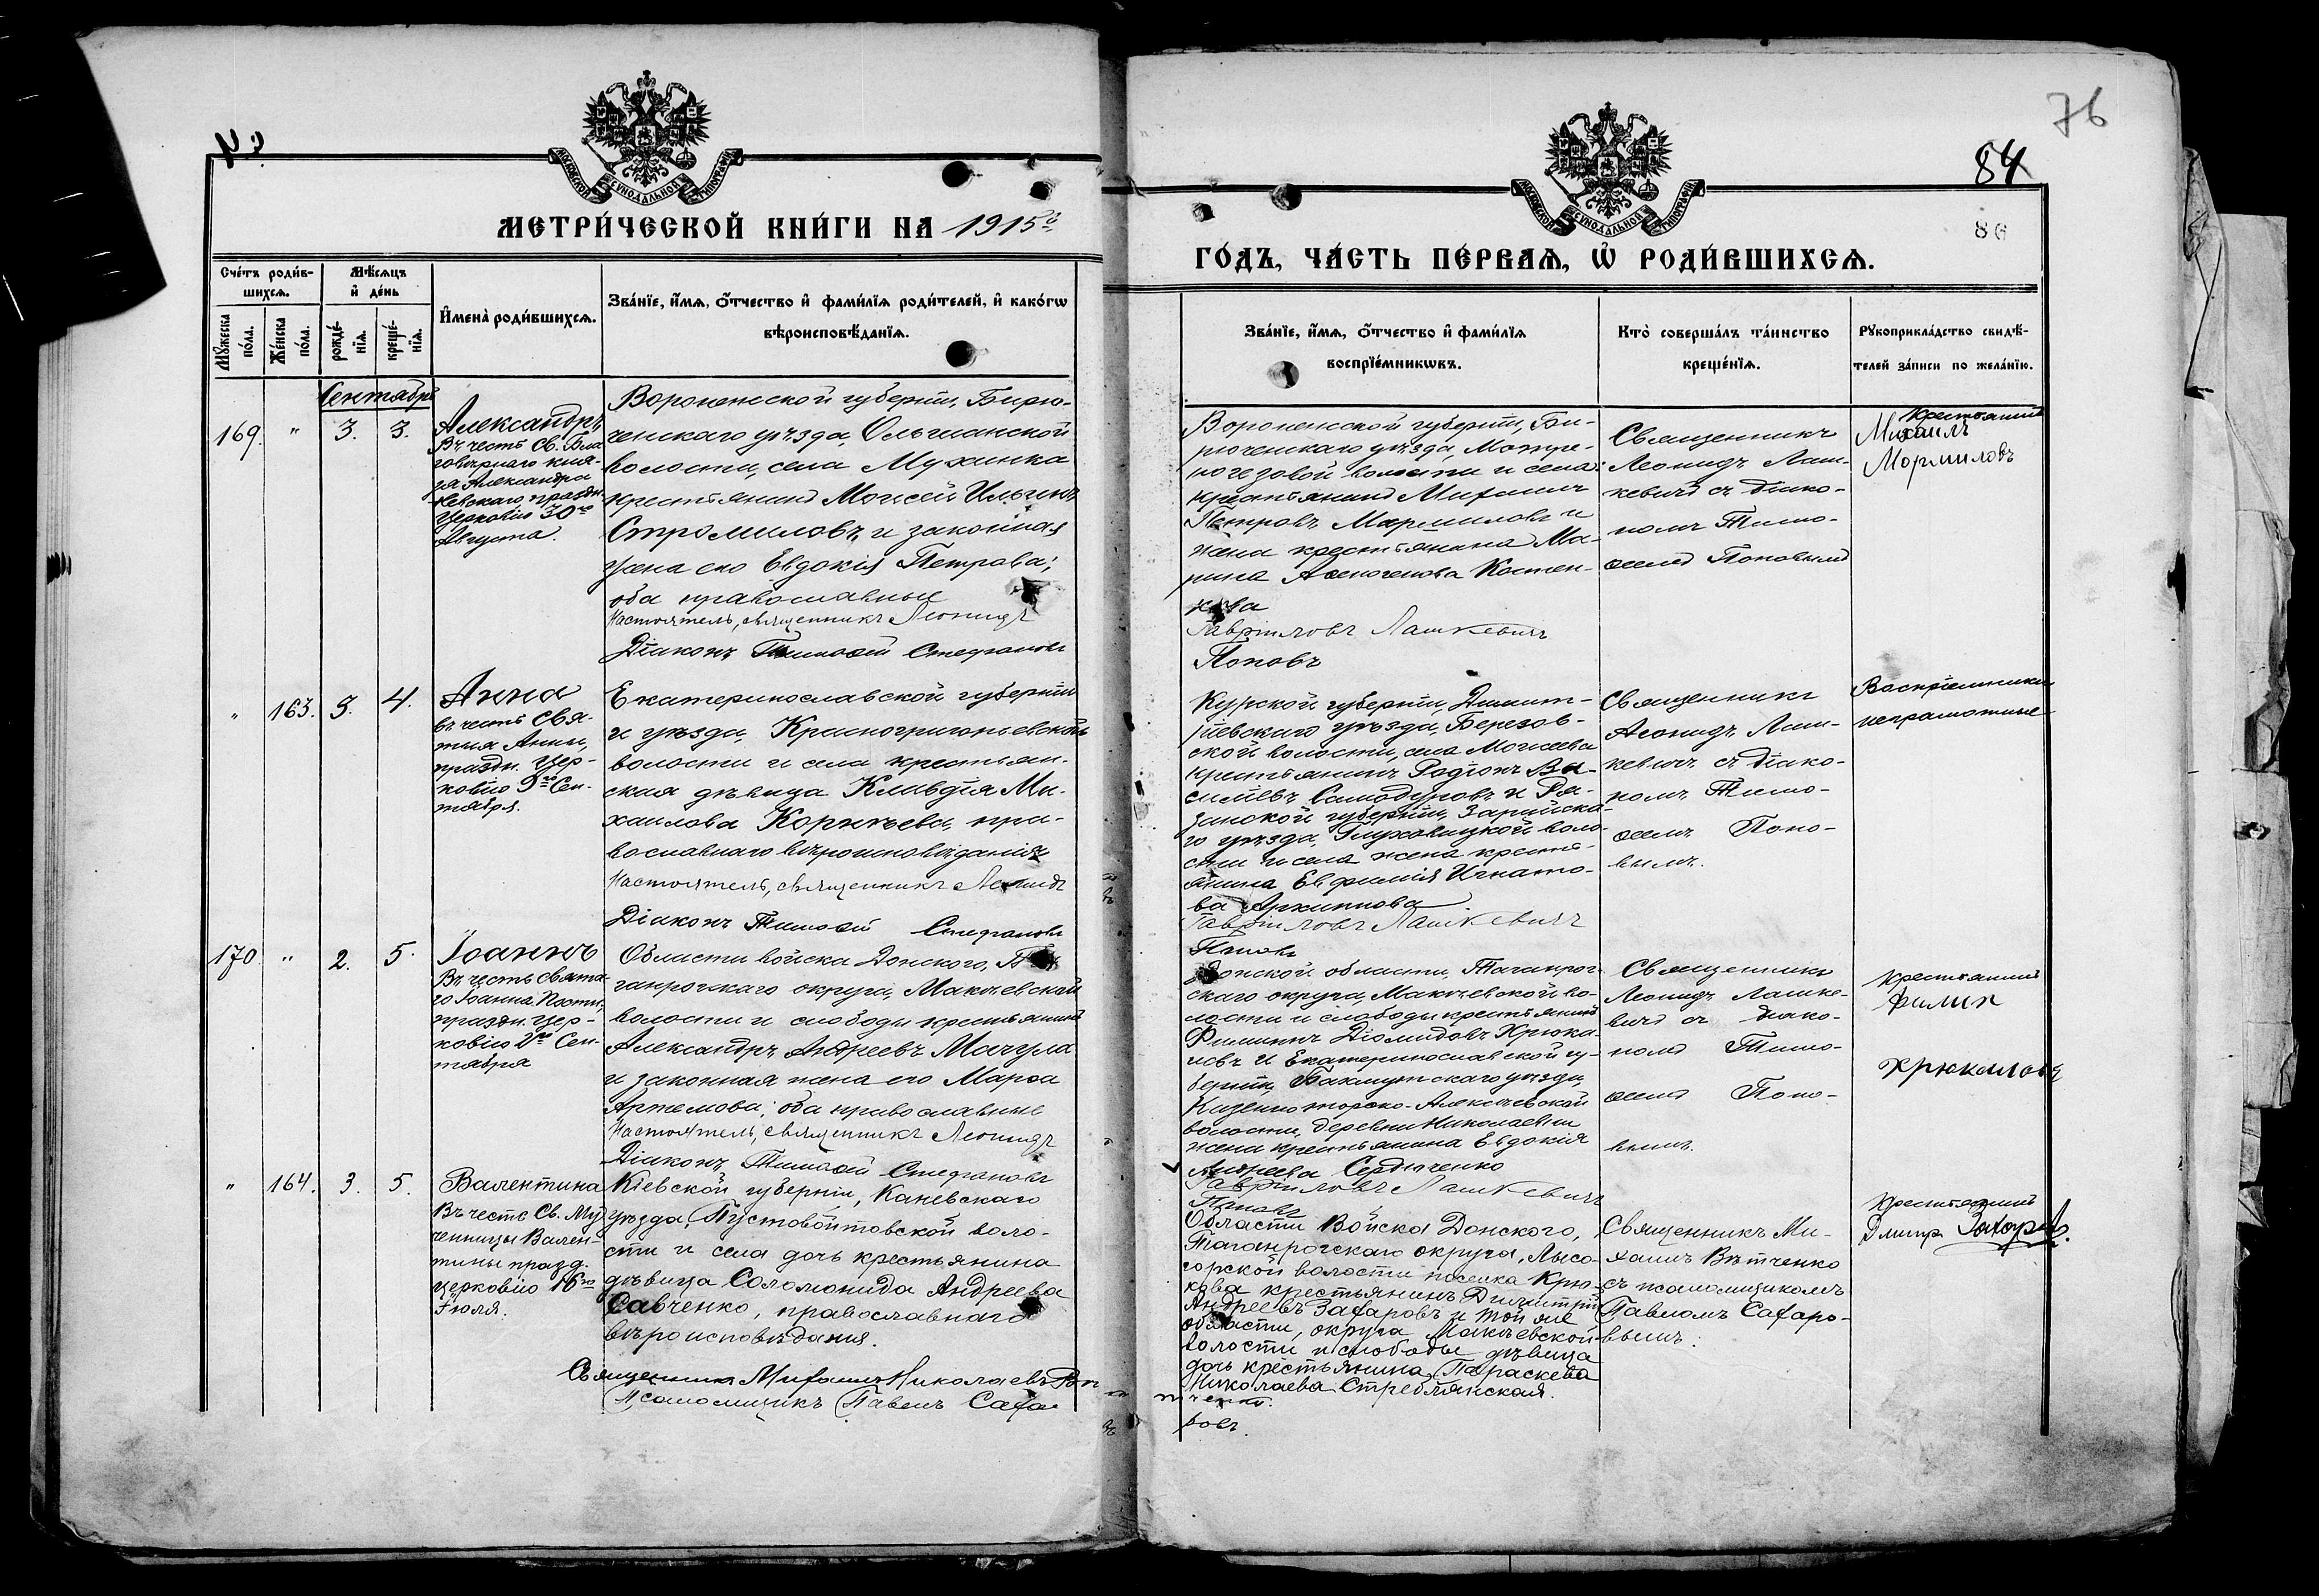 76
84
86
МОСКОВСКОЙ СѴНОДАЛЬНОЙ ТИПОГРАФІИ
МЕТРИ́ЧЕСКОЙ КНИ́ГИ НА 1915й
МОСКОВСКОЙ СѴНОДАЛЬНОЙ ТИПОГРАФІИ
ГО́ДЪ, ЧА́СТЬ ПЕ́РВАѦ, Ѡ҆ РОДИ́ВШИХСѦ.
Сче́тъ роди́в-
шихсѧ.
Мꙋжеска по́ла.
Же́нска по́ла.
Мѣ́сѧцъ
и҆ де́нь
рожде́-
нїѧ.
креще́-
нїѧ.
И҆мена̀ роди́вшихсѧ.
Зва́нїе, и҆́мѧ, ѻ҆́тчество и҆ фами́лїѧ роди́телей, и҆ како́гѡ
вѣроисповѣ́данїѧ.
Зва́нїе, и҆́мѧ, ѻ҆́тчество и҆ фами́лїѧ
воспрїе́мникѡвъ.
Кто̀ соверша́лъ та́инство
креще́нїѧ.
Рꙋкоприкла́дство свидѣ́-
телей за́писи по жела́нїю.
Сентябрь
169. " 3. 3.
Александръ
Въ честь Св. Бла
говѣрнаго кня-
зя Александра
Невскаго, праздн.
Церковію 30го
Августа.
Воронежской губерніи, Бирю-
ченскаго уѣзда, Ольшанской
волости, села Мухинка
крестьянинъ Моисей Ильинъ
Стромиловъ, и законная
жена его Евдокія Петрова;
оба православные
Настоятель, священникъ Леонидъ
Діаконъ Тимоѳей Стефановъ
Воронежской губерніи, Би-
рюченскаго уѣзда,
волости и села
крестьянинъ Михаилъ
Петровъ Мармиловъ и
жена крестьянина Ма-
рина
Гавріиловъ Лашкевичъ
Поповъ
Священникъ
Леонидъ Лаш-
кевичъ съ діако-
номъ Тимо-
ѳеемъ Поповымъ
Крестьянинъ
Михаилъ
Мормиловъ
" 163. 3. 4.
Анна
въ честь Свя-
тыя Анны,
праздн. Цер-
ковію 9го Сен-
тября.
Екатеринославской губерніи
и уѣзда, Краснотригорьевской
волости и села крестьян-
ская дѣвица Клавдія Ми-
хаилова Корнѣева, пра-
вославнаго вѣроисповѣданія
Настоятель, священникъ Леонидъ
Діаконъ Тимоѳей Стефановъ
Курской губерніи, Димит-
ріевскаго уѣзда, Березов-
ской волости, села Моисеева
крестьянинъ Родіонъ Ва-
силіевъ Самодуровъ и Ря-
занской губерніи, Зарайска-
го уѣзда, Глуховицкой воло-
сти и села жена кресть-
янина Евфимія Игнато-
ва Архипова
Гавріиловъ Лашкевичъ
Поповъ
Священникъ
Леонидъ Лаш-
кевичъ съ діако-
номъ Тимо-
ѳеемъ Попо-
вымъ.
Воспріемники
неграмотные
170 " 2. 5.
Іоаннъ
Въ честь Свята-
го Іоанна Постн.,
праздн. Цер-
ковію 2го Сен-
тября
Области войска Донского, Та-
ганрогскаго округа, Макѣевской
волости и слободы крестьянинъ
Александръ Андреевъ Мачула
и законная жена его Марѳа
Артемова; оба православные
Настоятель, священникъ Леонидъ
Діаконъ Тимоѳей Стефановъ
Донской области, Таганрог-
скаго округа, Макѣевской во-
лости и слободы крестьянинъ
Филиппъ Діомидовъ Хрюка-
ловъ и Екатеринославской гу-
берніи, Бахмутскаго уѣзда,
Казенноторско-Алексѣевской
волости, деревни Николаевки
жена крестьянина Евдокія
Андреева Сердюченко
Гавріиловъ Лашкевичъ
Поповъ
Священникъ
Леонидъ Лашке-
вичъ съ діако-
номъ Тимо-
ѳеемъ Попо-
вымъ.
Крестьянинъ
Филип
Хрюкалов
" 164. 3. 5.
Валентина
Въ честь Св. Му
ченницы Вален-
тины празд.
церковію 16го
Іюля.
Кіевской губерніи, Каневскаго
уѣзда, Пустовойтовской воло-
сти и села дочь крестьянина
дѣвица Соломонида Андреева
Савченко, православнаго
вѣроисповѣданія.
Священникъ Михаилъ Николаевъ Вѣ-
Псаломщикъ Павелъ Сафа-
Области Войска Донского,
Таганрогскаго округа, Лысо-
горской волости поселка Крю-
кова крестьянинъ Димитрій
Андреевъ Захаровъ и той же
области, округа Макѣевской
волости и слободы дѣвица
дочь крестьянина Параскева
Николаева Стреблянская.
тченко.
ровъ.
Священникъ Ми-
хаилъ Вѣтченко
съ псаломщикомъ
Павломъ Сафаро-
вымъ.
Крестьянинъ
Дмитр Захаров.